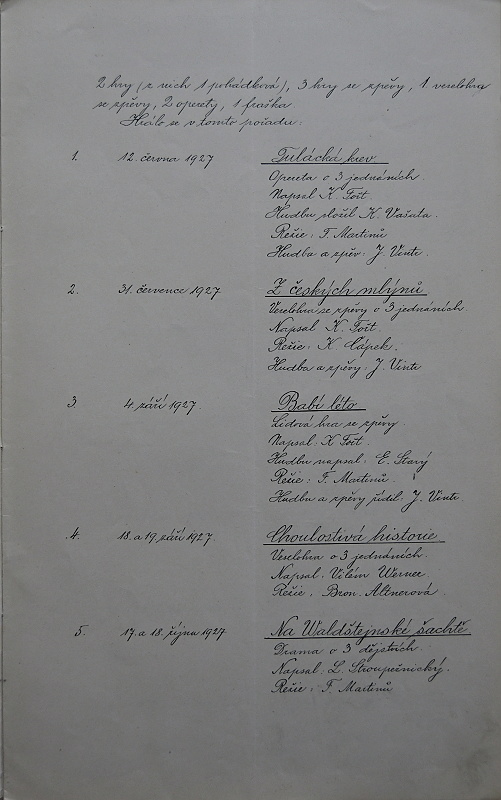 2 hry (z nich 1 pohádková), 3 hry se zpěvy, 1 veselohra
se zpěvy, 2 operety, 1 fraška
Hrálo se v tomto pořadu:
1. 12. června 1927 Tulácká krev
Opereta o 3 jednáních.
Napsal K. Fořt.
Hudbu složil K. Vašata.
Režie: F. Martinů
Hudba a zpěv: J. Vintr.
2. 31. července 1927 Z českých mlýnů
Veselohra se zpěvy o 3 jednáních.
Napsal K. Fořt.
Režie: K. Cápek.
Hudba a zpěvy: J. Vintr
3. 4. září 1927. Babí léto
Lidová hra se zpěvy.
Napsal: K Fořt.
Hudbu napsal: E. Starý
Režie: F. Martinů.
Hudbu a zpěvy řídil: J. Vintr.
4. 18. a 19. září 1927 Choulostivá historie
Veselohra o 3 jednáních.
Napsal: Vilém Werner.
Režie: Bron. Altnerová.
5. 17. a 18. října 1927 Na Waldštejnské šachtě
Drama o 3 dějstvích.
Napsal: L. Stroupežnický.
Režie: F. Martinů